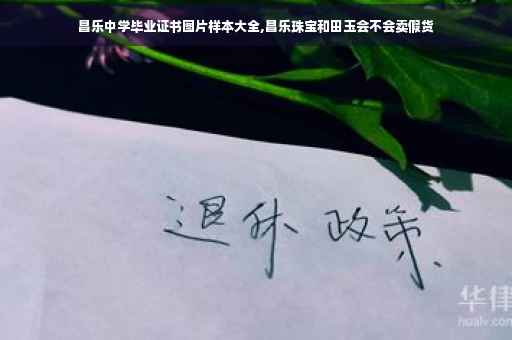 昌乐中学毕业证书图片样本大全,昌乐珠宝和田玉会不会卖假货
退休 政策
华律
hualv.com